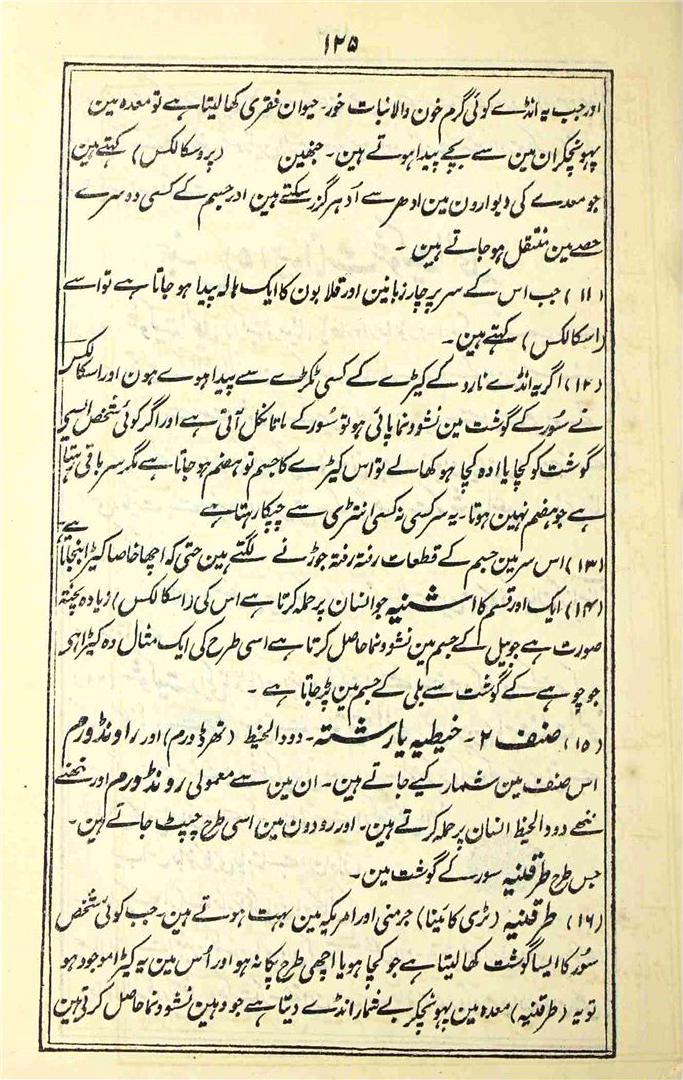 ۱۲۵
اور جب یہ انڈے کوئی گرم خون والا نبات خور۔ حیوان فقری کھا لیتا ہے تو معدہ مین
پہونچکر ان مین سے بچے پیدا ہوتے ہین۔ جنھین (پروسکالکس) کہتے ہین
جو معدے کی دیوارون مین ادھر سے اُدھر گزر سکتے ہین اور جسم کے کسی دوسرے
حصے مین منتقل ہو جاتے ہین ۔
(۱۱) جب اس کے سر پر چار زبانین اور قلابون کا ایک ہالہ پیدا ہو جاتا ہے تو اسے
(اسکالکس) کہتے ہین۔
(۱۲) اگر یہ انڈے نارو کے کیڑے کے کسی ٹکڑے سے پیدا ہوے ہون اور اسکالکس
نے سُور کے گوشت مین نشوونما پائی ہو تو سُور کے ماتا نکل آتی ہے اور اگر کوئی شخص ایسے
گوشت کو کچا یا ادہ کچا ہو کھالے تو اس کیڑے کا جسم تو ہضم ہو جاتا ہے مگر سر باقی رہتا
ہے جو ہضم نہین ہوتا۔ یہ سر کسی نہ کسی انتڑی سے چپکا رہتا ہے
(۱۳) اس سر مین جسم کے قطعات رفتہ رفتہ جوڑنے لگتے ہین حتی کہ اچھا خاصا کیڑا بنجاتا ہے
(۱۴) ایک اور قسم کا اشنیہ جو انسان پر حملہ کرتا ہے اس کی (اسکالکس) زیادہ پختہ
صورت ہے جو بیل کے جسم مین نشوونما حاصل کرتا ہے اسی طرح کی ایک مثال وہ کیڑا ہی
جو چوہے کے گوشت سے بلی کے جسم مین پڑجاتا ہے ۔
(۱۵) صنف ۲ ۔ خیطیہ یا رشتہ ۔ دود الخیط (تھرڈ ورم) اور راونڈ ورم
اس صنف مین شمار کیے جاتے ہین۔ ان مین سے معمولی رونڈ ورم اور ننھے
ننھے دود الخیط انسان پر حملہ کرتے ہین۔ اور رودون مین اسی طرح چپٹ جاتے ہین۔
جس طرح طرقنیہ سور کے گوشت مین۔
(۱۶) طرقنیہ (ٹری کائینا) جرمنی اور امریکہ مین بہت ہوتے ہین۔ جب کوئی شخص
سُور کا ایسا گوشت کھا لیتا ہے جو کچا ہو یا اچھی طرح پکا نہ ہو اور اُس مین یہ کیڑا موجود ہو
تو یہ (طرقنیہ) معدہ مین پہونچکر بے شمار انڈے دیتا ہے جو وہین نشوونما حاصل کرتی ہین